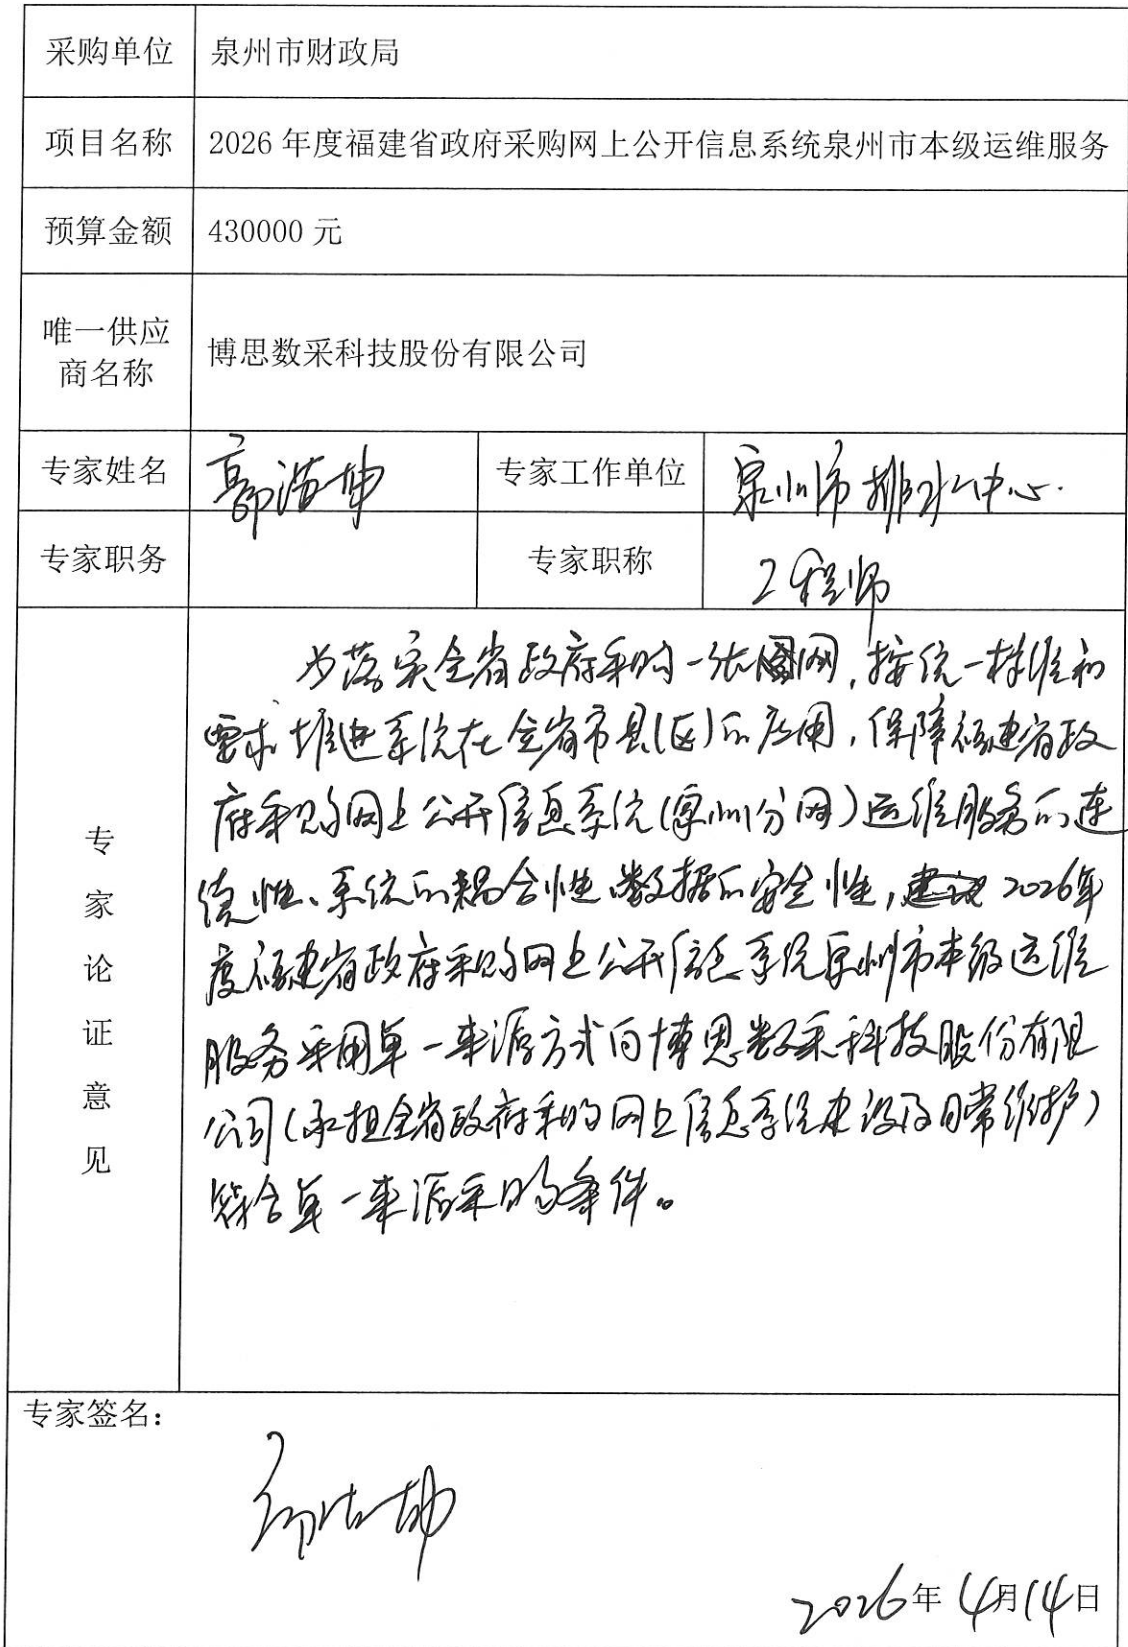 采购单位 泉州市财政局
项目名称 2026年度福建省政府采购网上公开信息系统泉州市本级运维服务
预算金额 430000元
唯一供应
商名称 博思数采科技股份有限公司
专家姓名 郭 坤 专家工作单位 泉州市排水中心.
专家职务 专家职称 工程师
专家论证意见
为落实全省政府采购一张网,按统一标准和
要求推进系统在全省市县(区)的应用,保障福建省政
府采购网上公开信息系统(泉州分网)运维服务的连
续性、系统的耦合性、数据的安全性,2026年
度福建省政府采购网上公开信息系统泉州市本级运维
服务采用单一来源方式向博思数采科技股份有限
公司(承担全省政府采购网上信息系统建设及日常维护)
符合单一来源采购条件。
专家签名:
2026年4月14日